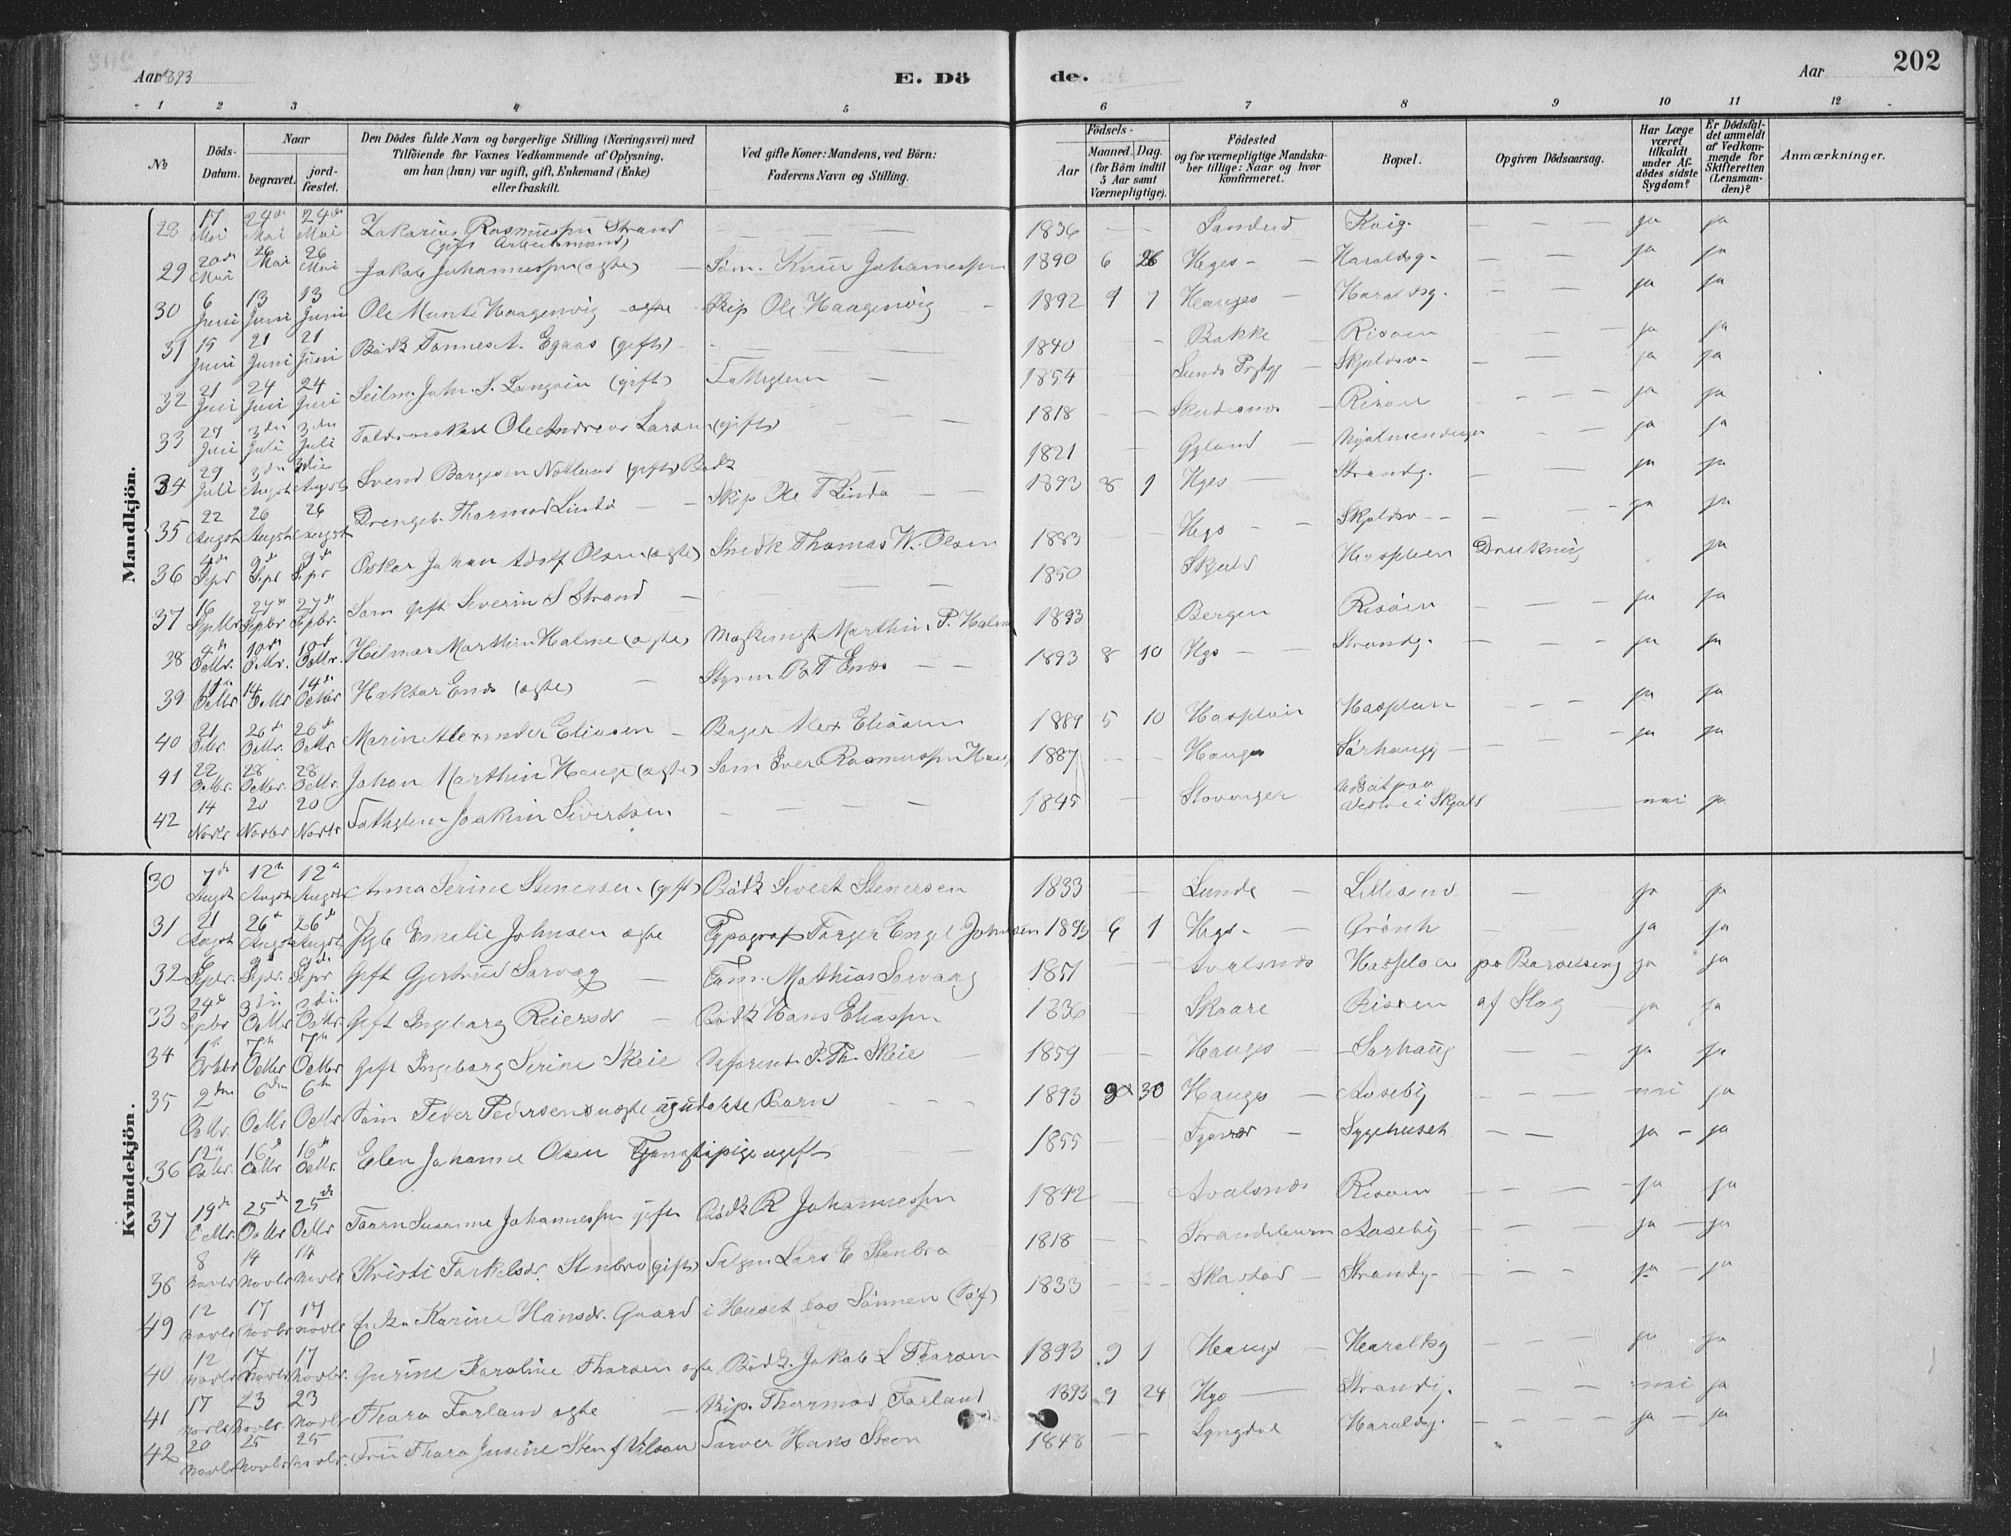 Aar 1893 E. Dö de. Aar 202
1 2 3 4 5 6 7 8 9 10 11 12
No Döds-Datum. Naar begravet. jord-fæstet. Den Dödes fulde Navn og borgerlige Stilling (Næringsvei) med Tilföiende for Voxnes Vedkommende af Oplysning, om han (hun) var ugift, gift, Enkemand (Enke) eller fraskilt. Ved gifte Koner: Mandens, ved Börn: Faderens Navn og Stilling. Födsels- Aar Maaned. Dag. (for Börn indtil 5 Aar samt Værnepligtige). Födested og for værnepligtige Mandskaber tillige: Naar og hvor konfirmeret. Bopæl. Opgiven Dödsaarsag. Har Læge været tilkaldt under Afdödes sidste Sygdom? Er Dödsfaldet anmeldt af Vedkommende for Skifteretten (Lensmanden)? Anmærkninger.
Mandkjön.
28 17 Mai 24de Mai 24de Mai Zakarias Rasmussen Strand (gift Arbeidsmand) 1836 Sandeid Kvig. ja ja
29 20de Mai 26 Mai 26 Mai Jakob Johannessen (ægte) Søm. Knut Johannessen 1890 6 26 Hges Haraldsg. ja ja
30 6 Juni 13 Juni 13 Juni Ole Munte Haagenvig ægte Skip Ole Haagenvig 1892 9 7 Hauges Haraldsg. ja ja
31 15 Juni 21 Juni 21 Juni Bødk Tønnes A. Egaas (gift) 1840 Bakke Risøen ja ja
32 21 Juni 24 Juni 24 Juni Seilm. Joh. S. Langøen (gift) Fattiglem 1854 Lunds Prgj Skjoldsv. ja ja
33 27 Juni 3die Juli 3die Juli Ole Andreas Larsen (gift) 1818 Skudesnes Risøen ja ja
34 29 Juli 3die Augst 3die Augst Svend Børgesen Nøtland (gift) Bødk 1821 Gyland ja ja
35 22 Augst 26 Augst 26 Augst Drengeb. Thormod Lindø Skip Ole T Lindø 1893 8 1 Hges Strandg. ja ja
36 4de Sepr 9de Sepr 9de Sepr Oskar Johan Adolf Olsen (ægte) Snedk Thomas W. Olsen 1883 Hgs Skjoldsv ja ja
37 16 Septbr 27de Septbr 27de Septbr. Søm gift Severin S Strand 1850 Skjold Hasseløen Drukning ja
38 4de Octbr. 10de Octbr. 10de Octbr. Hilmar Marthin Holme (ægte) Maskinist Marthin P. Holm 1893 Bergen Risøen ja ja
39 11te Octbr 14 Octbr 14de Octbr Haktor Enes (ægte) Styrm B T Enes 1893 8 10 Hgs Strandg. ja ja
40 21 Octbr. 26de Octbr. 26de Octbr. Marin Alexander Eliasen Bager Alex Eliasen 1889 5 10 Hasseløen Hasseløen ja ja
41 22 Octbr. 28 Octbr. 28 Octbr. Johan Marthin Hauge (ægte) Søm Iver Rasmussen Haug 1887 Hauges Sørhaugg ja ja
42 14 Novbr 20 Novbr 20 Novbr Fattiglem Joakim Sivertsen 1845 Stavanger Udsat paa i Skjold nei ja
Kvindekjön.
30 7de Augst 12te Augst 12te Augst Anna Serine Stenersen (gift) Bødk Sivert Stenersen 1833 Lunde Lillesund ja ja
31 21 Augst 26de Augst 26de Augst Pigb Emelie Johnsen ægte Typograf Torger Engel Johnsen 1893 6 1 Hgs Grønh ja ja
32 6 Sepbr. 9de Sepbr. 9de Sepbr Gift Gjertrud Sørvaag Søm. Mathias Sørvaag 1851 Avalsnæs Hasseløen pr Barselseng ja ja
33 24de Sepbr 3die Octbr 3die Octbr. Gift Ingeborg Reiersdr Bødk Hans Eliassen 1836 Skaare Risøen af Slag ja ja
34 1te Octbr 7de Octbr 7de Octbr Gift Ingeborg Serine Skeie P. Th. Skeie 1859 Hauges Sørhaug ja ja
35 2den Octbr. 6te Octbr 6te Octbr Søm Peder Pedersens uægte ugudøbte Barn 1893 9 30 Hauges Aaseby nei ja
36 12te Octbr. 16de Octbr 16de Octbr. Elen Johanne Olsen Tjenestepige ugift 1855 Sygehuset ja ja
37 19de Octbr. 25de Octbr 25de Octbr Susanne Johannessen gift Bødk R Johannessen 1842 Avalsnæs Risøen ja ja
38 8 Novbr 14 Novbr 14 Novbr Kristi Torkelsdr. Stenbro (gift) Lars E Stenbro 1818 Strandebarm Aaseby ja ja
49 12 Novbr 17 Novbr 17 Novbr Enke Karine Hansdr. Gaard i Huset hos Sønnen 1833 Skartad Strandg. ja ja
40 12 Novbr 17 Novbr 17 Novbr. Gurine Karoline Thorsen ægte Bødk. Jakob L Thorsen 1893 9 1 Hauges Haraldsg ja ja
41 17 Novbr 23 Novbr. 23 Novbr Thora Førland ægte Skip. Thormod Førland 1893 9 24 Hgs Strandg. nei ja
42 20 Novbr 25 Novbr 25 Novbr. Fru Thora Jusine Sten f Nilsen Farver Hans Steen 1848 Lyngdal Haraldsg. ja ja